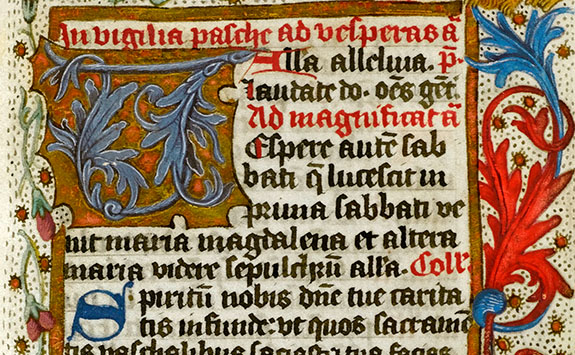 In vigilia pasche ad vesperas añ
Alla alleluia. p̄.
Laudate do. oēs gēt.
Ad magnificat añ
Vespere autē sab
bati q̄ lucescit in
prima sabbati ve
nit maria magdalena et altera
maria videre sepulchrū alla. Coll̄.
Spiritū nobis dn̄e tue carita
tis infunde: vt quos sacramē
tis paschalibus saciasti tua facias